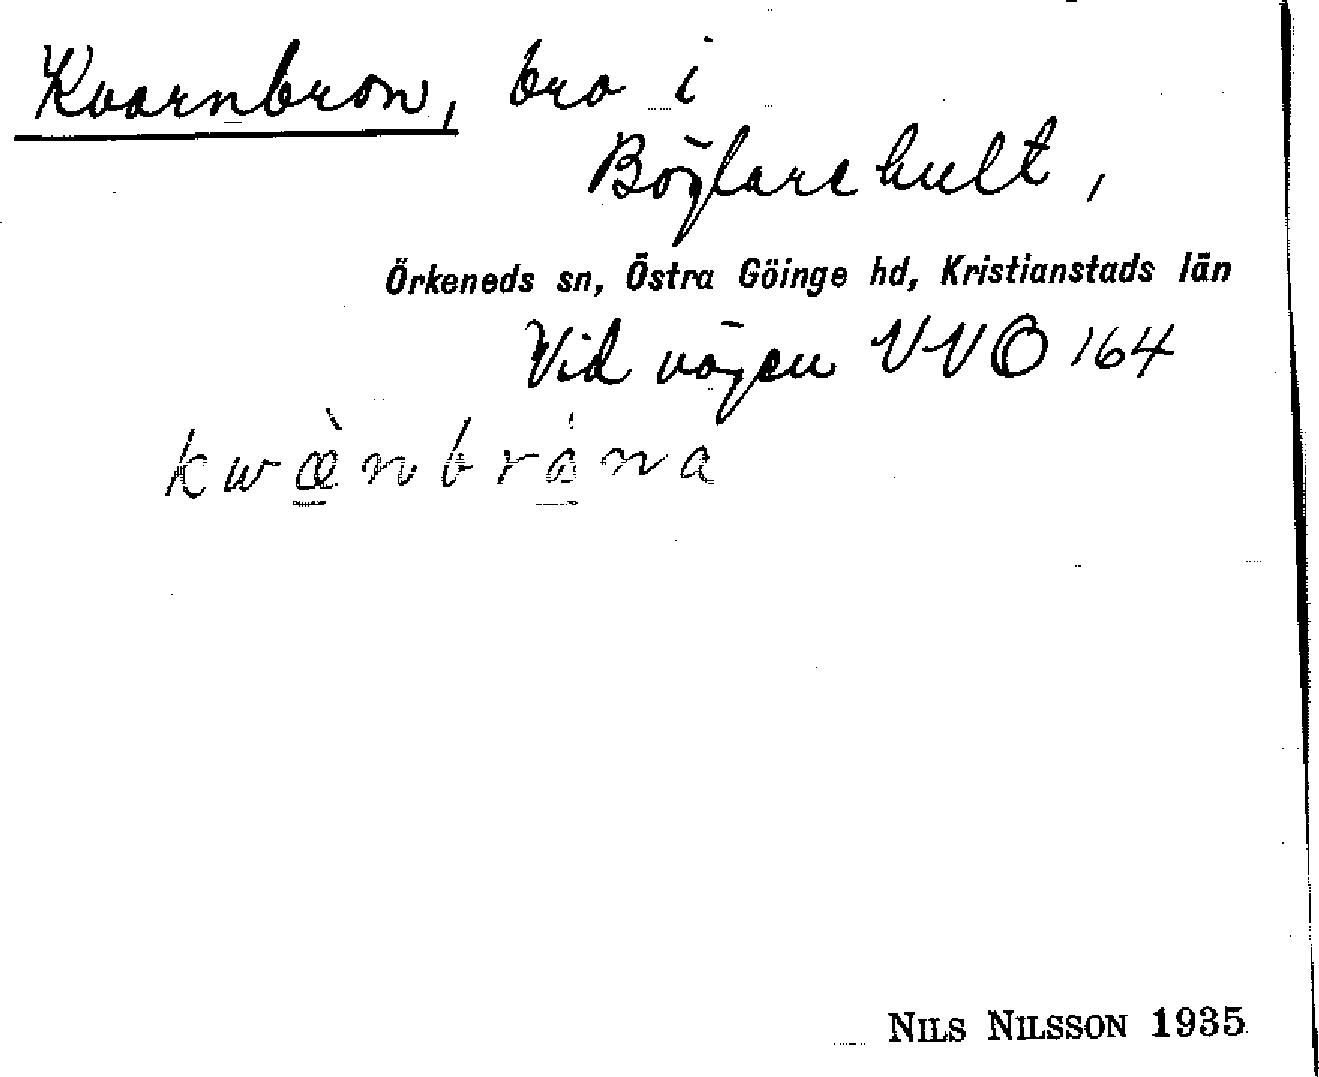 Kvarnbron, bro i
Böglarehult,
Örkeneds sn, Östra Göinge hd, Kristianstads län
Vid vägen VVO 164
kwæ̀nbråna
NILS NILSSON 1935